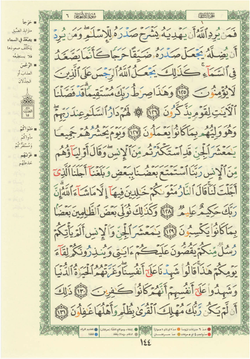 فَمَن يُرِدِ ٱللَّهُ أَن يَهْدِيَهُۥ يَشْرَحْ صَدْرَهُۥ لِلْإِسْلَٰمِ وَمَن يُرِدْ
أَن يُضِلَّهُۥ يَجْعَلْ صَدْرَهُۥ ضَيِّقًا حَرَجًا كَأَنَّمَا يَصَّعَّدُ
فِى ٱلسَّمَآءِ كَذَٰلِكَ يَجْعَلُ ٱللَّهُ ٱلرِّجْسَ عَلَى ٱلَّذِينَ
لَا يُؤْمِنُونَ ١٢٥ وَهَٰذَا صِرَٰطُ رَبِّكَ مُسْتَقِيمًا قَدْ فَصَّلْنَا
ٱلْـَٔايَٰتِ لِقَوْمٍ يَذَّكَّرُونَ ١٢٦ لَهُمْ دَارُ ٱلسَّلَٰمِ عِندَ رَبِّهِمْ
وَهُوَ وَلِيُّهُم بِمَا كَانُوا۟ يَعْمَلُونَ ١٢٧ وَيَوْمَ يَحْشُرُهُمْ جَمِيعًا
يَٰمَعْشَرَ ٱلْجِنِّ قَدِ ٱسْتَكْثَرْتُم مِّنَ ٱلْإِنسِ وَقَالَ أَوْلِيَآؤُهُم
مِّنَ ٱلْإِنسِ رَبَّنَا ٱسْتَمْتَعَ بَعْضُنَا بِبَعْضٍ وَبَلَغْنَآ أَجَلَنَا ٱلَّذِىٓ
أَجَّلْتَ لَنَا قَالَ ٱلنَّارُ مَثْوَىٰكُمْ خَٰلِدِينَ فِيهَآ إِلَّا مَا شَآءَ ٱللَّهُ إِنَّ
رَبَّكَ حَكِيمٌ عَلِيمٌ ١٢٨ وَكَذَٰلِكَ نُوَلِّى بَعْضَ ٱلظَّٰلِمِينَ بَعْضًۢا
بِمَا كَانُوا۟ يَكْسِبُونَ ١٢٩ يَٰمَعْشَرَ ٱلْجِنِّ وَٱلْإِنسِ أَلَمْ يَأْتِكُمْ
رُسُلٌ مِّنكُمْ يَقُصُّونَ عَلَيْكُمْ ءَايَٰتِى وَيُنذِرُونَكُمْ لِقَآءَ
يَوْمِكُمْ هَٰذَا قَالُوا۟ شَهِدْنَا عَلَىٰٓ أَنفُسِنَا وَغَرَّتْهُمُ ٱلْحَيَوٰةُ ٱلدُّنْيَا
وَشَهِدُوا۟ عَلَىٰٓ أَنفُسِهِمْ أَنَّهُمْ كَانُوا۟ كَٰفِرِينَ ١٣٠ ذَٰلِكَ
أَن لَّمْ يَكُن رَّبُّكَ مُهْلِكَ ٱلْقُرَىٰ بِظُلْمٍ وَأَهْلُهَا غَٰفِلُونَ ١٣١
١٤٤